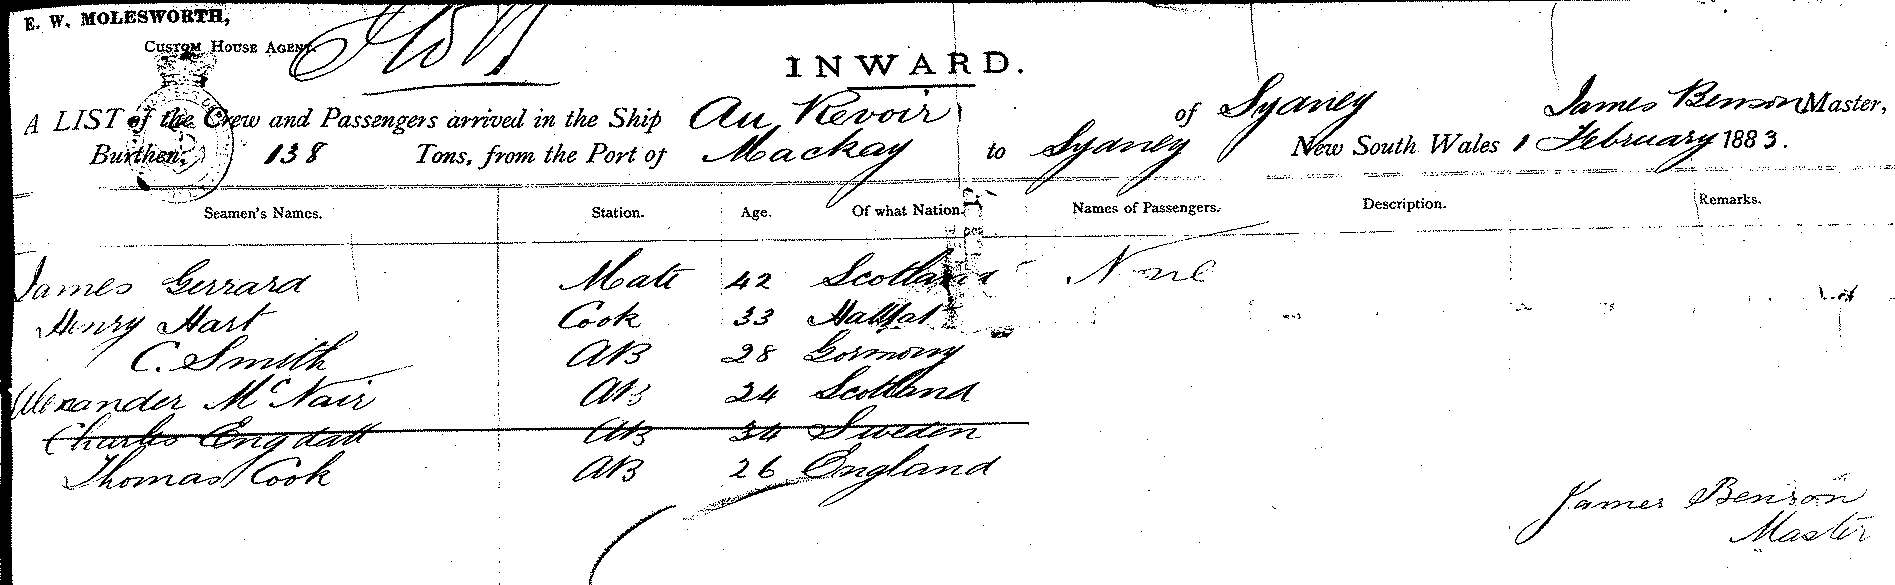 E. W. MOLESWORTH,
CUSTOM HOUSE AGENT.
INWARD.
A LIST of the Crew and Passengers arrived in the Ship Au Revoir of Sydney James Benson Master,
Burthen, 138 Tons, from the Port of Mackay to Sydney New South Wales 1 February 1883.
Seamen's Names. Station. Age. Of what Nation. Names of Passengers. Description. Remarks.
James Gerrard Mate 42 Scotland None
Henry Hart Cook 33
C. Smith AB 28 Germony
Alexander McNair AB 24 Scotland
Charles Engdall AB 34 Sweden
Thomas Cook AB 26 England
James Benson
Master